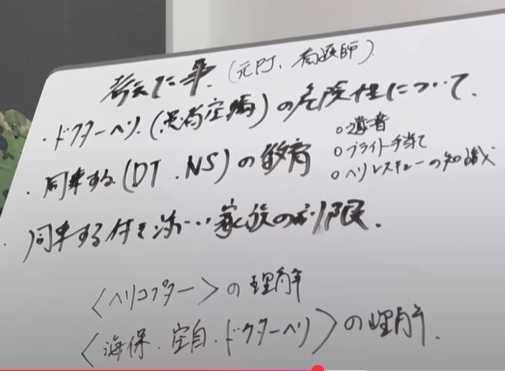 考えた事.(元PJ、看護師)
・ドクターヘリ(患者空輸)の危険性について.
○遺書
・同乗する(DT.NS)の教育
○フライト手当て
○ヘリレスキューの知識
・同乗する付き添い…家族の制限.
〈ヘリコプター〉の理解
〈海保.空自.ドクターヘリ〉の理解.